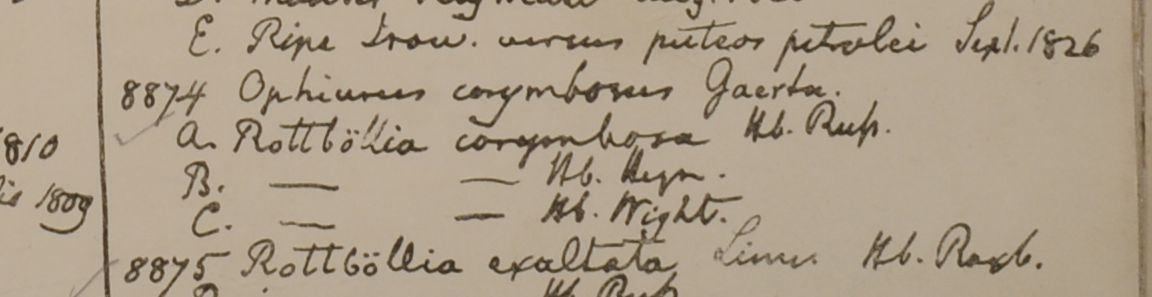 E. Ripa Iraw. versus puteos petrolei Sept. 1826
8874 Ophiurus corymbosus Gaertn.
1810
a. Rottböllia corymbosa Hb. Russ.
B. — — Hb. Heyn.
1809
C. — — Hb. Wight.
8875 Rottböllia exaltata Linn. Hb. Roxb.